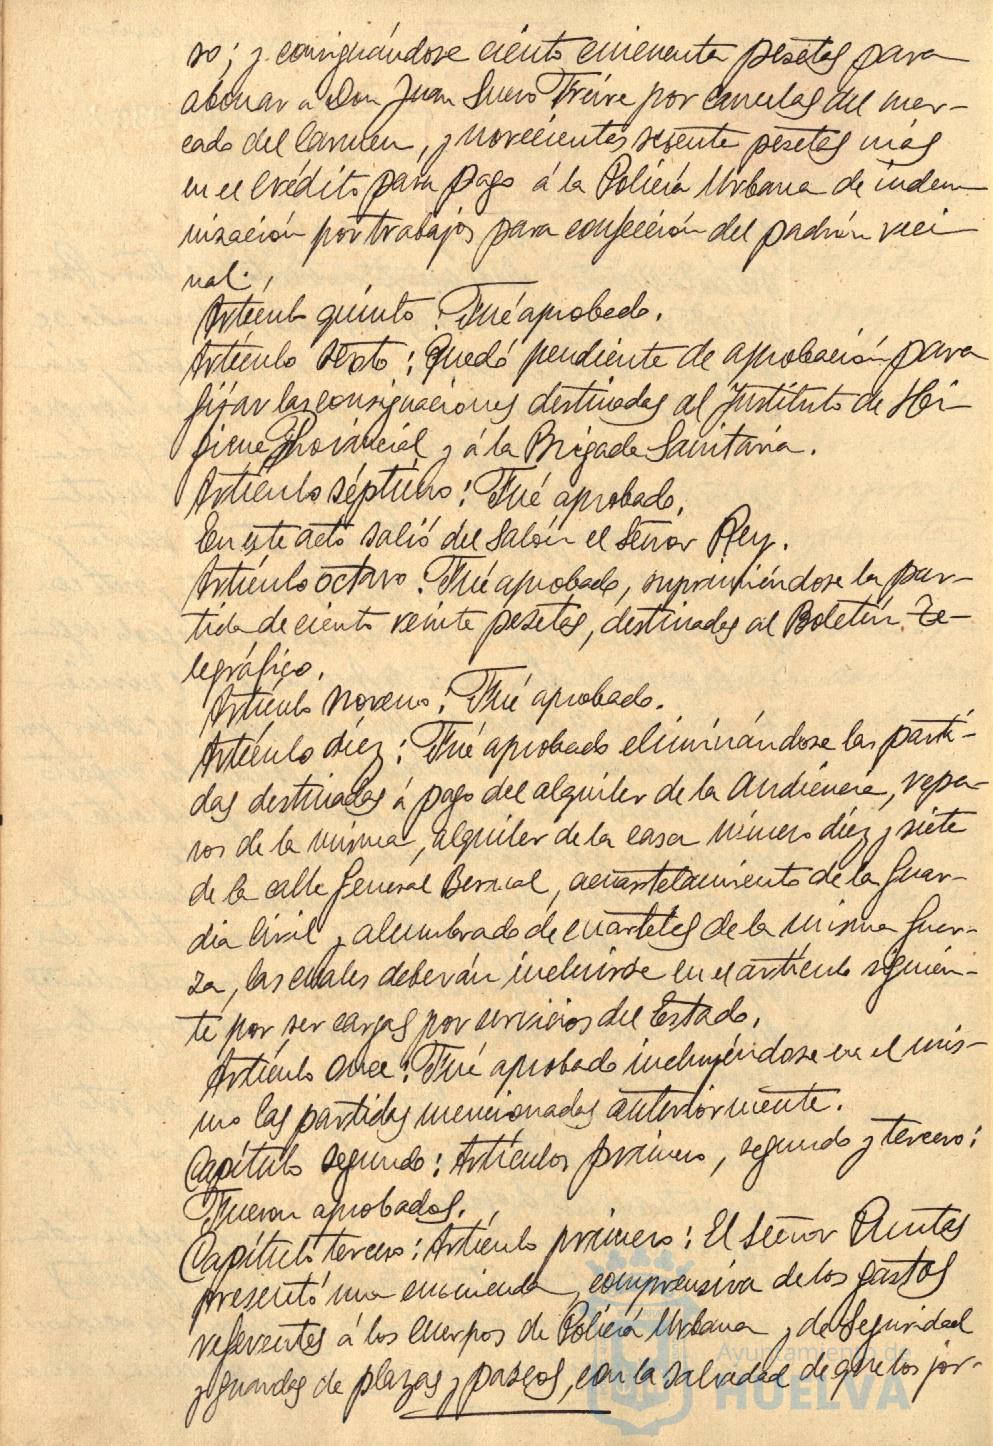 so; y consignándose ciento cincuenta pesetas para
abonar a Don Juan Suero Freire por cancelas del mer-
cado del Carmen, y novecientas sesenta pesetas más
en el crédito para pago á la Policía Urbana de indem
nización por trabajos para confección del padrón veci
nal.
Artículo quinto: Fué aprobado.
Artículo sexto: Quedó pendiente de aprobación para
fijar las consignaciones destinadas al Instituto de Hi-
giene Provincial y á la Brigada Sanitaria.
Artículo séptimo: Fué aprobado.
En este acto salió del Salón el Señor Rey.
Artículo octavo: Fué aprobado, suprimiéndose la par-
tida de ciento veinte pesetas, destinadas al Boletín Te-
legráfico.
Artículo noveno: Fué aprobado.
Artículo diez: Fué aprobado eliminándose las parti-
das destinadas á pago del alquiler de la Audiencia, repa-
ros de la misma, alquiler de la casa número diez y siete
de la calle General Bernal, acuartelamiento de la Guar-
dia Civil y alumbrado de cuarteles de la misma fuer-
za, las cuales deberán incluirse en el artículo siguien-
te por ser cargas por servicios del Estado.
Artículo once: Fué aprobado incluyéndose en el mis-
mo las partidas mencionadas anteriormente.
Capítulo segundo: Artículos primero, segundo y tercero:
Fueron aprobados.
Capítulo tercero: Artículo primero: El Señor Puntas
presentó una enmienda, comprensiva de los gastos
referentes á los Cuerpos de Policía Urbana y de Seguridad
y guardas de plazas y paseos, con la salvedad de que los jor-
Ayuntamiento de
HUELVA